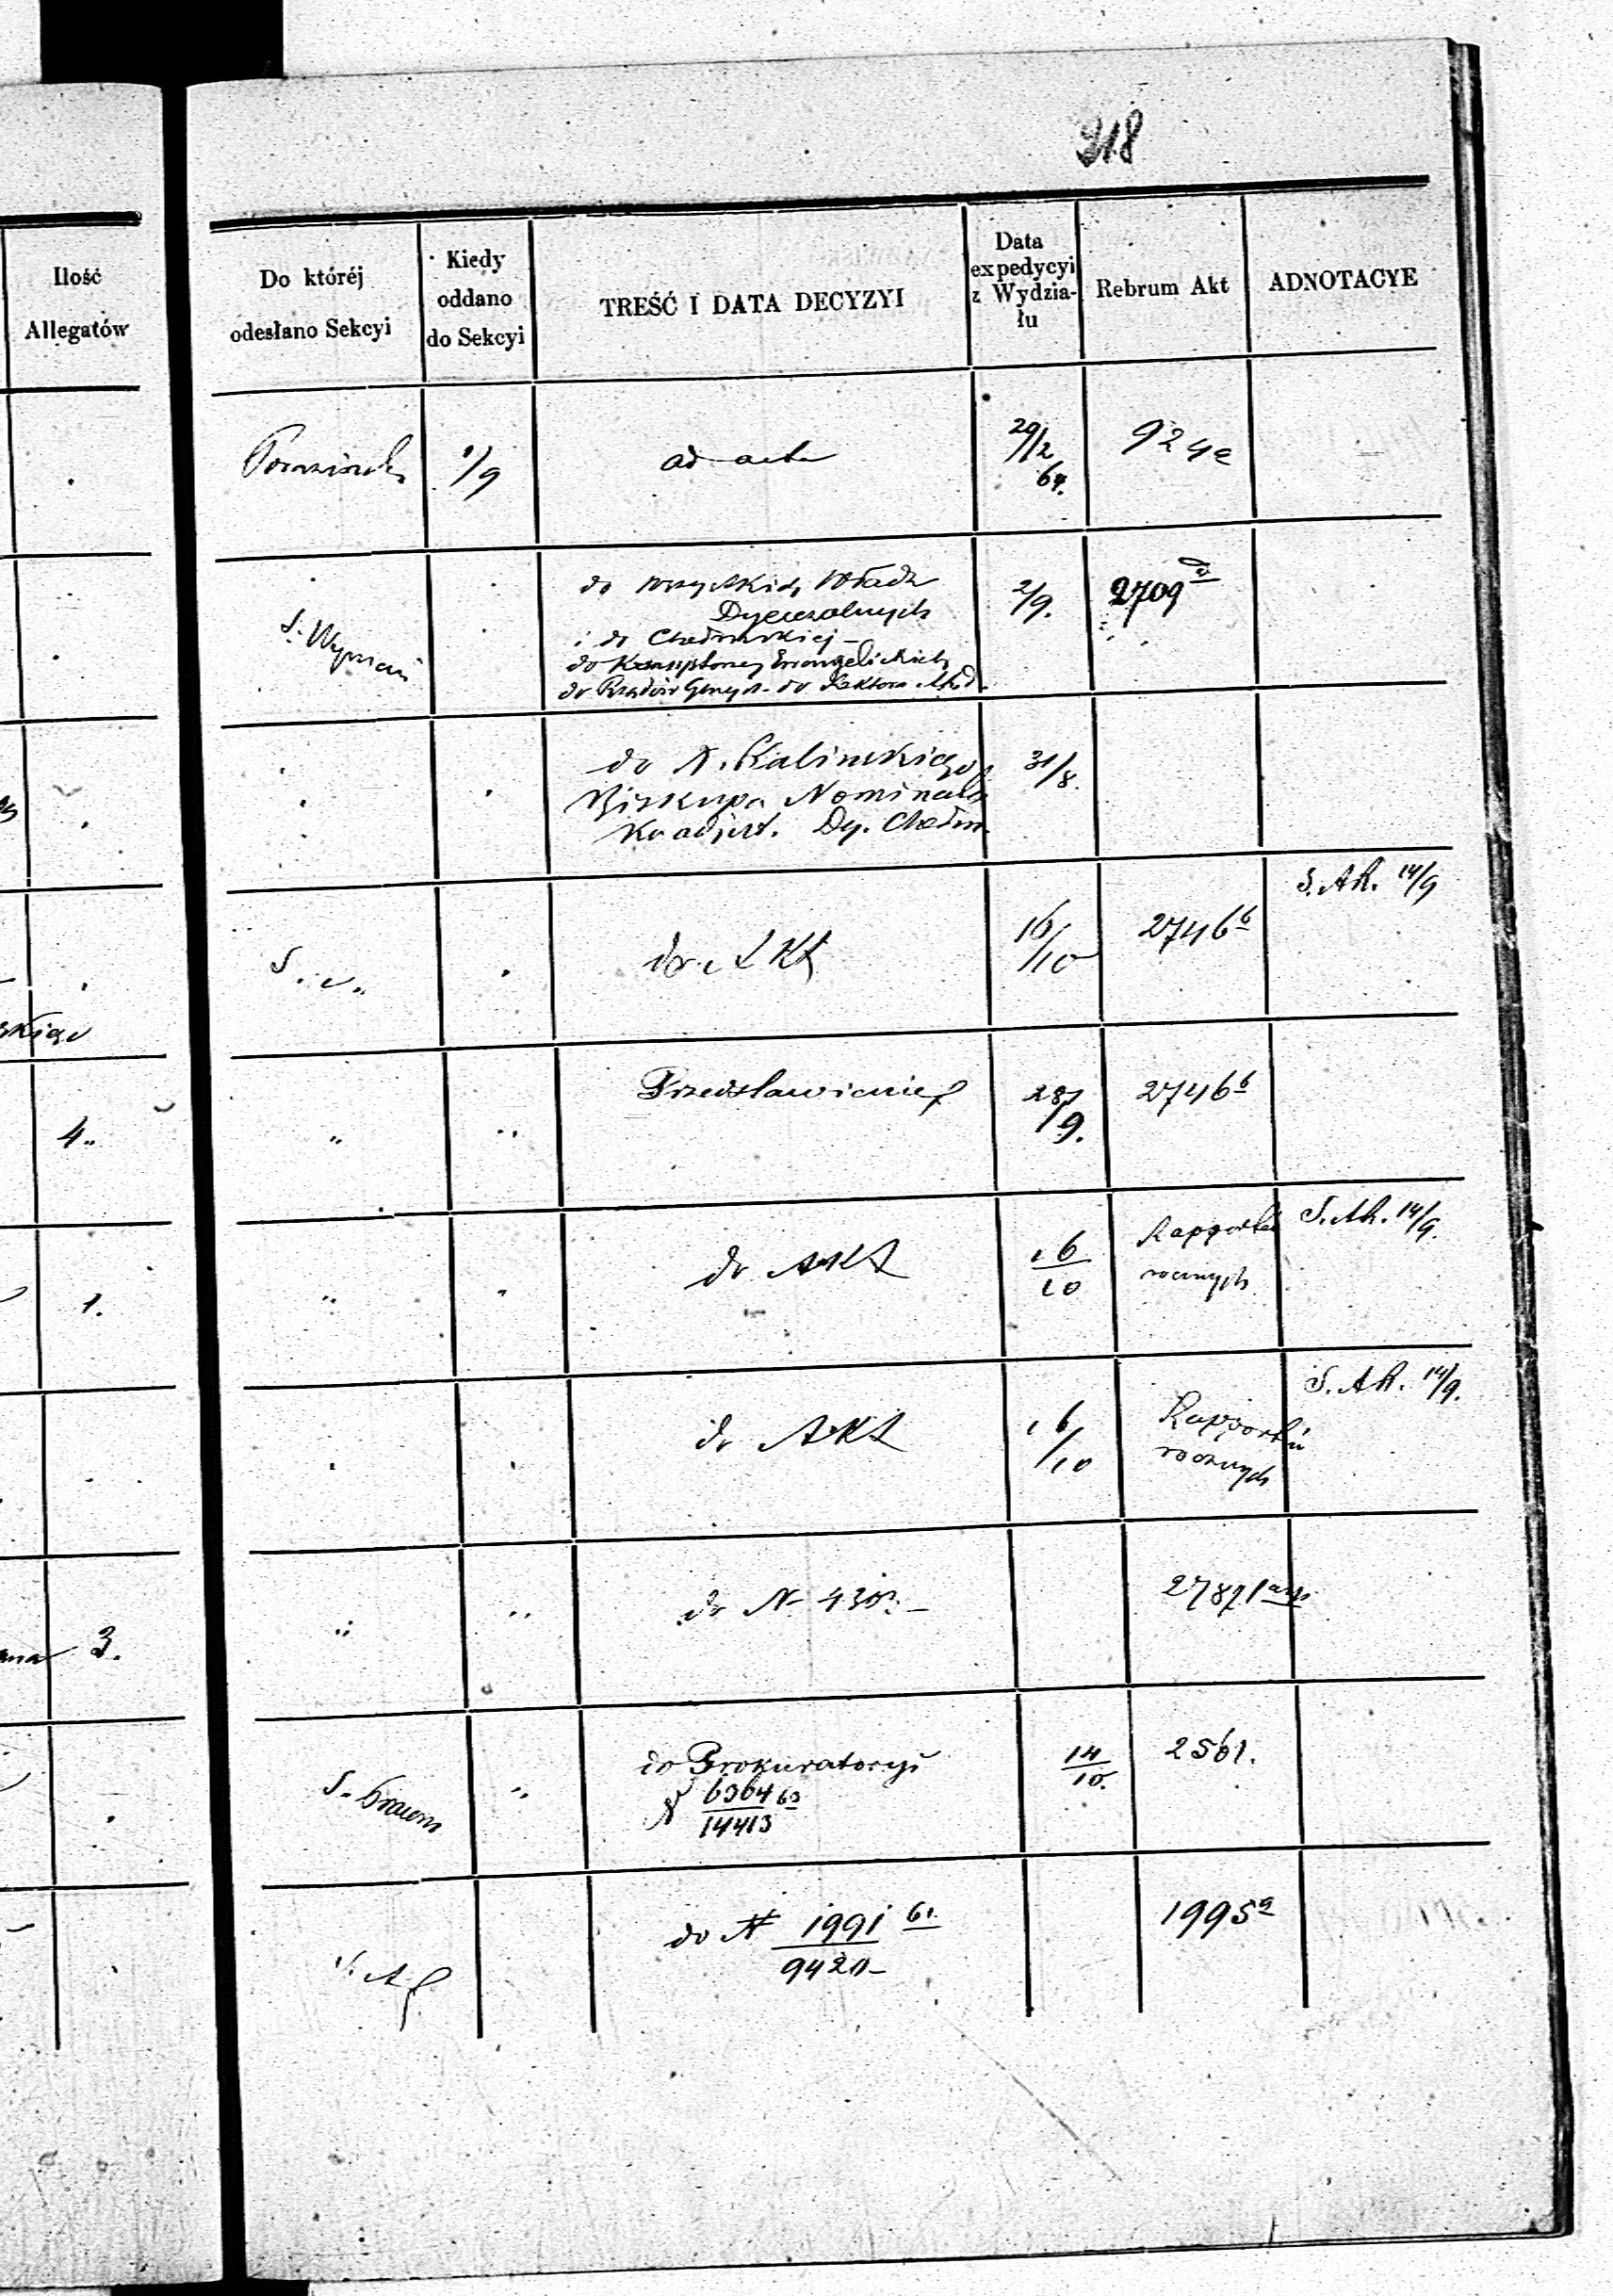 318
Ilość
Allegatów
Do któréj
odesłano Sekcyi
Kiedy
oddano
do Sekcyi
TREŚĆ I DATA DECYZYI
Data
expedycyi
z Wydzia-
łu
Rebrum Akt
ADNOTACYE
1/9
ad acta
29/2
64.
924
do wszystkich Władz
Dyecezalnych
i do Chełmskiej —
do Ewangelickich
do Rządów do Rektora
2/9.
2709
do N. Kalinskiego
Biskupa Nominata
Koadjut. Dy. Chełm.
31/8.
S. „
do Akt
16/10
2746 b
S. AR. 14/9
4„
„
„
Przedstawienie
28/9.
2746 b
1.
„
„
do Akt
16/10
Rapporta
rocznych
S. AR. 14/9.
do Akt
16/10
Rapportów
rocznych
S. AR. 14/9.
3.
„
„
do N 4302. —
S. Braun
„
do Prokuratoryi
N 6364 63
14413
14/10.
2561.
do N 1991 61.
9420 —
1995 a